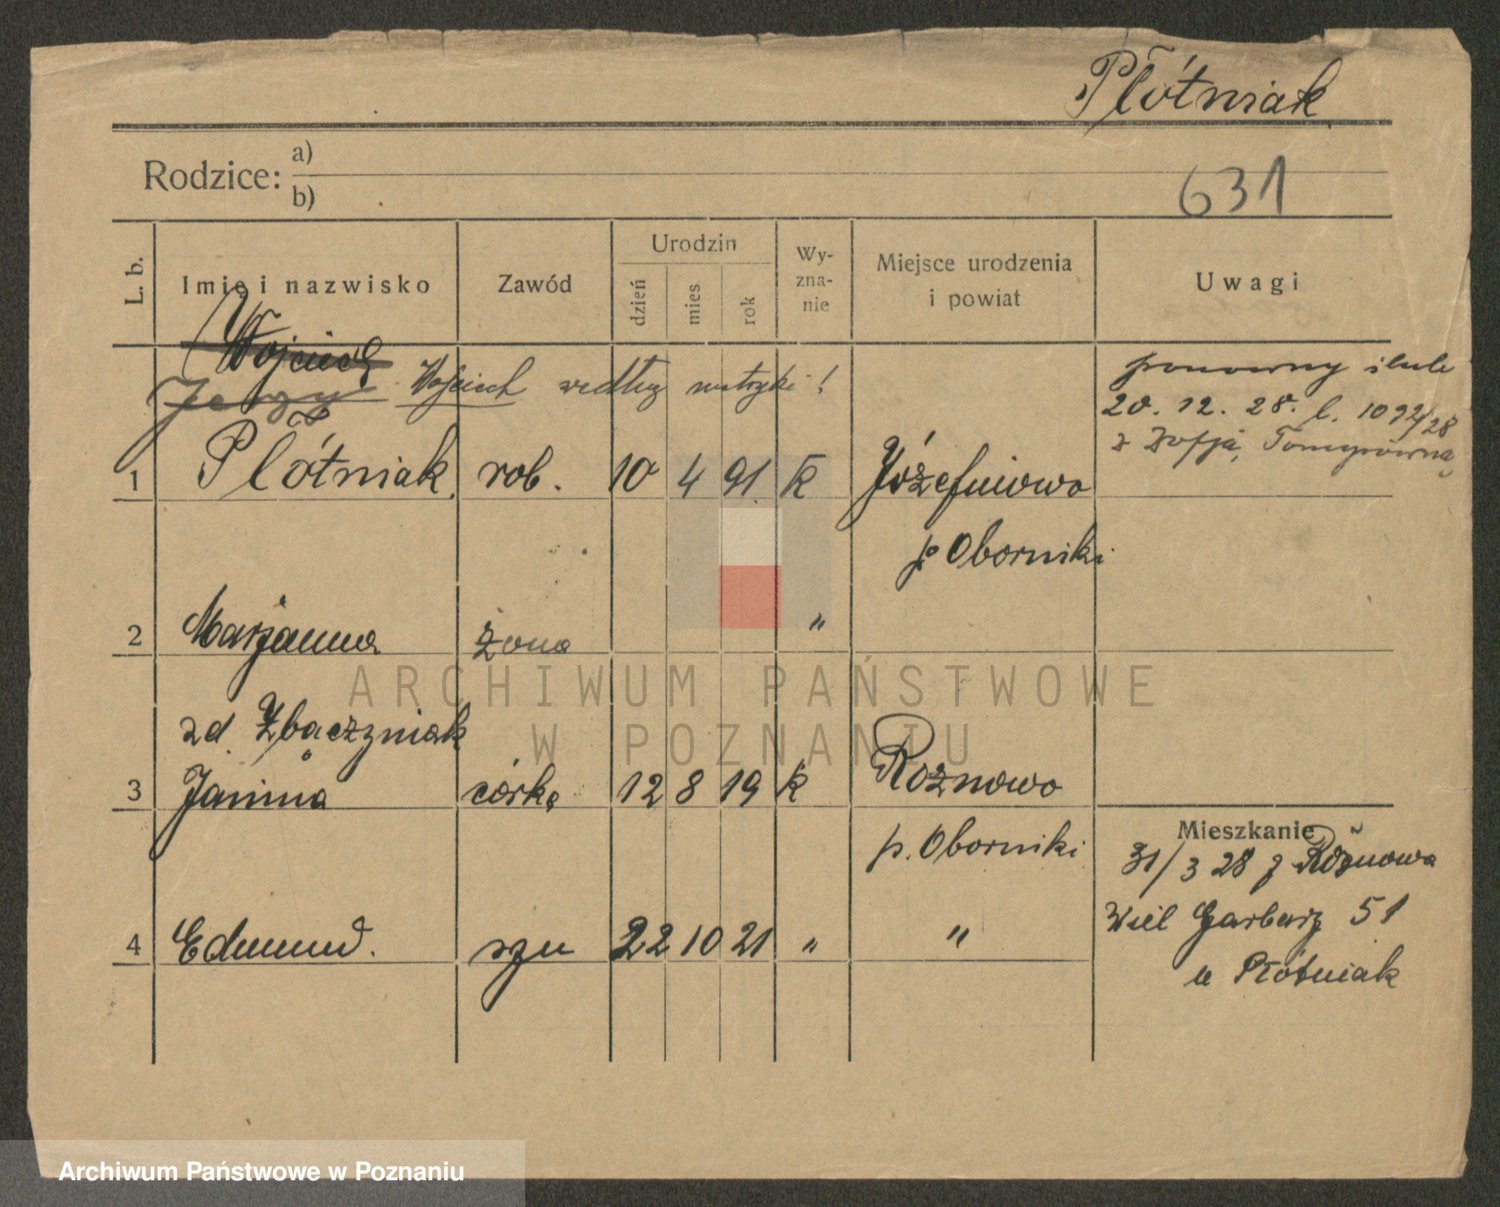 Płótniak
Rodzice: a)
b)
631
L. b.
Imię i nazwisko
Zawód
Urodzin
dzień
mies
rok
Wy-
zna-
nie
Miejsce urodzenia
i powiat
Uwagi
Wojciech
Jerzy Wojciech według metryki!
1 Płótniak rob. 10 4 91 k Józefinowo
p. Oborniki
ponowny ślub
20. 12. 28. l. 1092/28
z Zofją
2 Marjanna żona "
zd. Zbączyniak
3 Janina córka 12 8 19 k Rożnowo
p. Oborniki
4 Edmund. syn 22 10 21 " "
Mieszkanie
31/3 28 z Rożnowa
Wiel Garbary 51
u Płótniak
ARCHIWUM PAŃSTWOWE
W POZNANIU
Archiwum Państwowe w Poznaniu